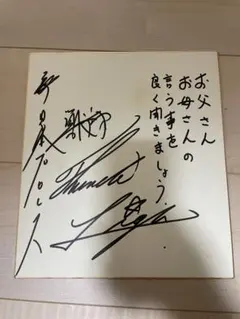 お父さん
お母さんの
言う事を
良く聞きましょう.
獣神
Thunder
Liger
新日本プロレス